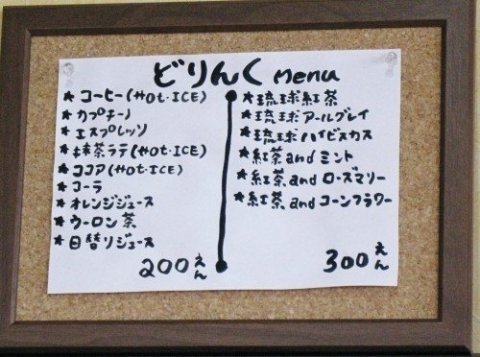 どりんく Menu
★ コーヒー(Hot・ICE)
★ カプチーノ
★ エスプレッソ
★ 抹茶ラテ(Hot・ICE)
★ ココア(Hot・ICE)
★ コーラ
★ オレンジジュース
★ ウーロン茶
★ 日替りジュース
200えん
★ 琉球紅茶
★ 琉球アールグレイ
★ 琉球ハイビスカス
★ 紅茶andミント
★ 紅茶andローズマリー
★ 紅茶andコーンフラワー
300えん